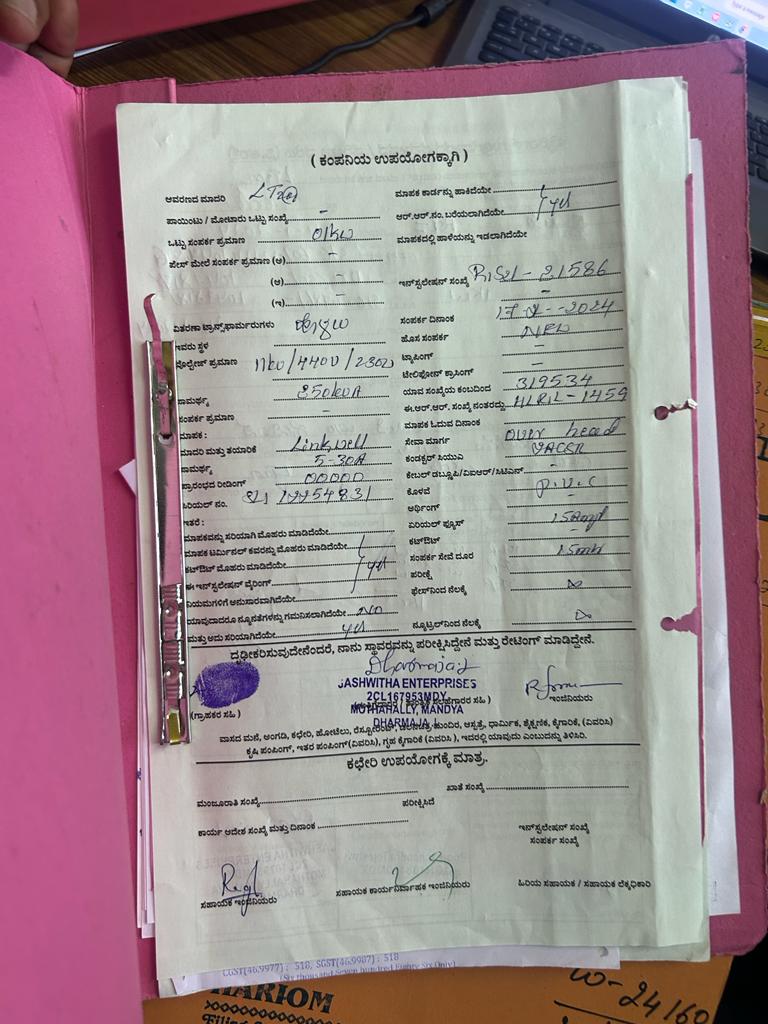 ( ಕಂಪನಿಯ ಉಪಯೋಗಕ್ಕಾಗಿ )
ಆವರಣದ ಮಾದರಿ
ಮಾಪಕ ಕಾರ್ಡನ್ನು ಹಾಕಿದೆಯೇ
ಪಾಯಿಂಟು / ಮೋಟಾರು ಒಟ್ಟು ಸಂಖ್ಯೆ -
ಆರ್.ಆರ್.ನಂ. ಬರೆಯಲಾಗಿದೆಯೇ yes
ಒಟ್ಟು ಸಂಪರ್ಕ ಪ್ರಮಾಣ 01kw
ಮಾಪಕದಲ್ಲಿ ಹಾಳೆಯನ್ನು ಇಡಲಾಗಿದೆಯೇ
ಫೇಸ್ ಮೇಲೆ ಸಂಪರ್ಕ ಪ್ರಮಾಣ (ಅ) -
(ಆ) -
ಇನ್‌ಸ್ಟಲೇಷನ್ ಸಂಖ್ಯೆ 31586
(ಇ) -
ವಿತರಣಾ ಟ್ರಾನ್ಸ್‌ಫಾರ್ಮರುಗಳು
ಸಂಪರ್ಕ ದಿನಾಂಕ 2024
ಇವರು ಸ್ಥಳ
ಹೊಸ ಸಂಪರ್ಕ NEW
ವೋಲ್ಟೇಜ್ ಪ್ರಮಾಣ 11kv/440V/230V
ಟ್ಯಾಪಿಂಗ್ -
ಟೆಲಿಫೋನ್ ಕ್ರಾಸಿಂಗ್ -
ಸಾಮರ್ಥ್ಯ 250kVA
ಯಾವ ಸಂಖ್ಯೆಯ ಕಂಬದಿಂದ 319534
ಸಂಪರ್ಕ ಪ್ರಮಾಣ -
ಈ.ಆರ್.ಆರ್. ಸಂಖ್ಯೆ ನಂತರದ್ದು 1459
ಮಾಪಕ :
ಮಾಪಕ ಓದುವ ದಿನಾಂಕ
ಮಾದರಿ ಮತ್ತು ತಯಾರಿಕೆ Linkwell
ಸೇವಾ ಮಾರ್ಗ over head
ಸಾಮರ್ಥ್ಯ 5-30A
ಕಂಡಕ್ಟರ್ ಸಿಯುಎ
ಪ್ರಾರಂಭದ ರೀಡಿಂಗ್ 00000
ಕೇಬಲ್ ಡಬ್ಲ್ಯೂಪಿ/ವಿಐಆರ್/ಸಿಟಿಎಸ್
ಸಿರಿಯಲ್ ನಂ.
ಕೊಳವೆ P.V.C
ಇತರೆ :
ಅರ್ಥಿಂಗ್ -
ಮಾಪಕವನ್ನು ಸರಿಯಾಗಿ ಮೊಹರು ಮಾಡಿದೆಯೇ
ಏರಿಯಲ್ ಫ್ಯೂಸ್ 15Amp
ಮಾಪಕ ಟರ್ಮಿನಲ್ ಕವರನ್ನು ಮೊಹರು ಮಾಡಿದೆಯೇ
ಕಟ್‌ಔಟ್ -
ಕಟ್‌ಔಟ್ ಮೊಹರು ಮಾಡಿದೆಯೇ yes
ಸಂಪರ್ಕ ಸೇವೆ ದೂರ 15mtr
ಈ ಇನ್‌ಸ್ಟಲೇಷನ್ ವೈರಿಂಗ್
ಪರೀಕ್ಷೆ
ನಿಯಮಗಳಿಗೆ ಅನುಸಾರವಾಗಿದೆಯೇ
ಫೇಸ್‌ನಿಂದ ನೆಲಕ್ಕೆ ∞
ಯಾವುದಾದರೂ ನ್ಯೂನತೆಗಳನ್ನು ಗಮನಿಸಲಾಗಿದೆಯೇ NO
ಮತ್ತು ಅದು ಸರಿಯಾಗಿದೆಯೇ yes
ನ್ಯೂಟ್ರಲ್‌ನಿಂದ ನೆಲಕ್ಕೆ ∞
ದೃಢೀಕರಿಸುವುದೇನೆಂದರೆ, ನಾನು ಸ್ಥಾವರವನ್ನು ಪರೀಕ್ಷಿಸಿದ್ದೇನೆ ಮತ್ತು ರೇಟಿಂಗ್ ಮಾಡಿದ್ದೇನೆ.
JASHWITHA ENTERPRISES
2CL167953MDY
MUTHAHALLY, MANDYA
DHARMAJA. J
(ಗ್ರಾಹಕರ ಸಹಿ )
ಇಂಜಿನಿಯರು
ವಾಸದ ಮನೆ, ಅಂಗಡಿ, ಕಛೇರಿ, ಹೋಟೆಲು, ರೆಸ್ಟೋರೆಂಟ್, ಚಲನಚಿತ್ರ ಮಂದಿರ, ಆಸ್ಪತ್ರೆ, ಧಾರ್ಮಿಕ, ಶೈಕ್ಷಣಿಕ, ಕೈಗಾರಿಕೆ, (ವಿವರಿಸಿ)
ಕೃಷಿ ಪಂಪಿಂಗ್, ಇತರ ಪಂಪಿಂಗ್(ವಿವರಿಸಿ), ಗೃಹ ಕೈಗಾರಿಕೆ (ವಿವರಿಸಿ ), ಇದರಲ್ಲಿ ಯಾವುದು ಎಂಬುದನ್ನು ತಿಳಿಸಿರಿ.
ಕಛೇರಿ ಉಪಯೋಗಕ್ಕೆ ಮಾತ್ರ.
ಮಂಜೂರಾತಿ ಸಂಖ್ಯೆ
ಪರೀಕ್ಷಿಸಿದೆ
ಖಾತೆ ಸಂಖ್ಯೆ
ಕಾರ್ಯ ಆದೇಶ ಸಂಖ್ಯೆ ಮತ್ತು ದಿನಾಂಕ
ಇನ್‌ಸ್ಟಲೇಷನ್ ಸಂಖ್ಯೆ
ಸಂಪರ್ಕ ಸಂಖ್ಯೆ
ಸಹಾಯಕ ಇಂಜಿನಿಯರು
ಸಹಾಯಕ ಕಾರ್ಯನಿರ್ವಾಹಕ ಇಂಜಿನಿಯರು
ಹಿರಿಯ ಸಹಾಯಕ / ಸಹಾಯಕ ಲೆಕ್ಕಾಧಿಕಾರಿ
CGST(46.9977) : 518, SGST(46.9987) : 518
(Six thousand Seven hundred Eighty Six Only)
HARIOM
24160